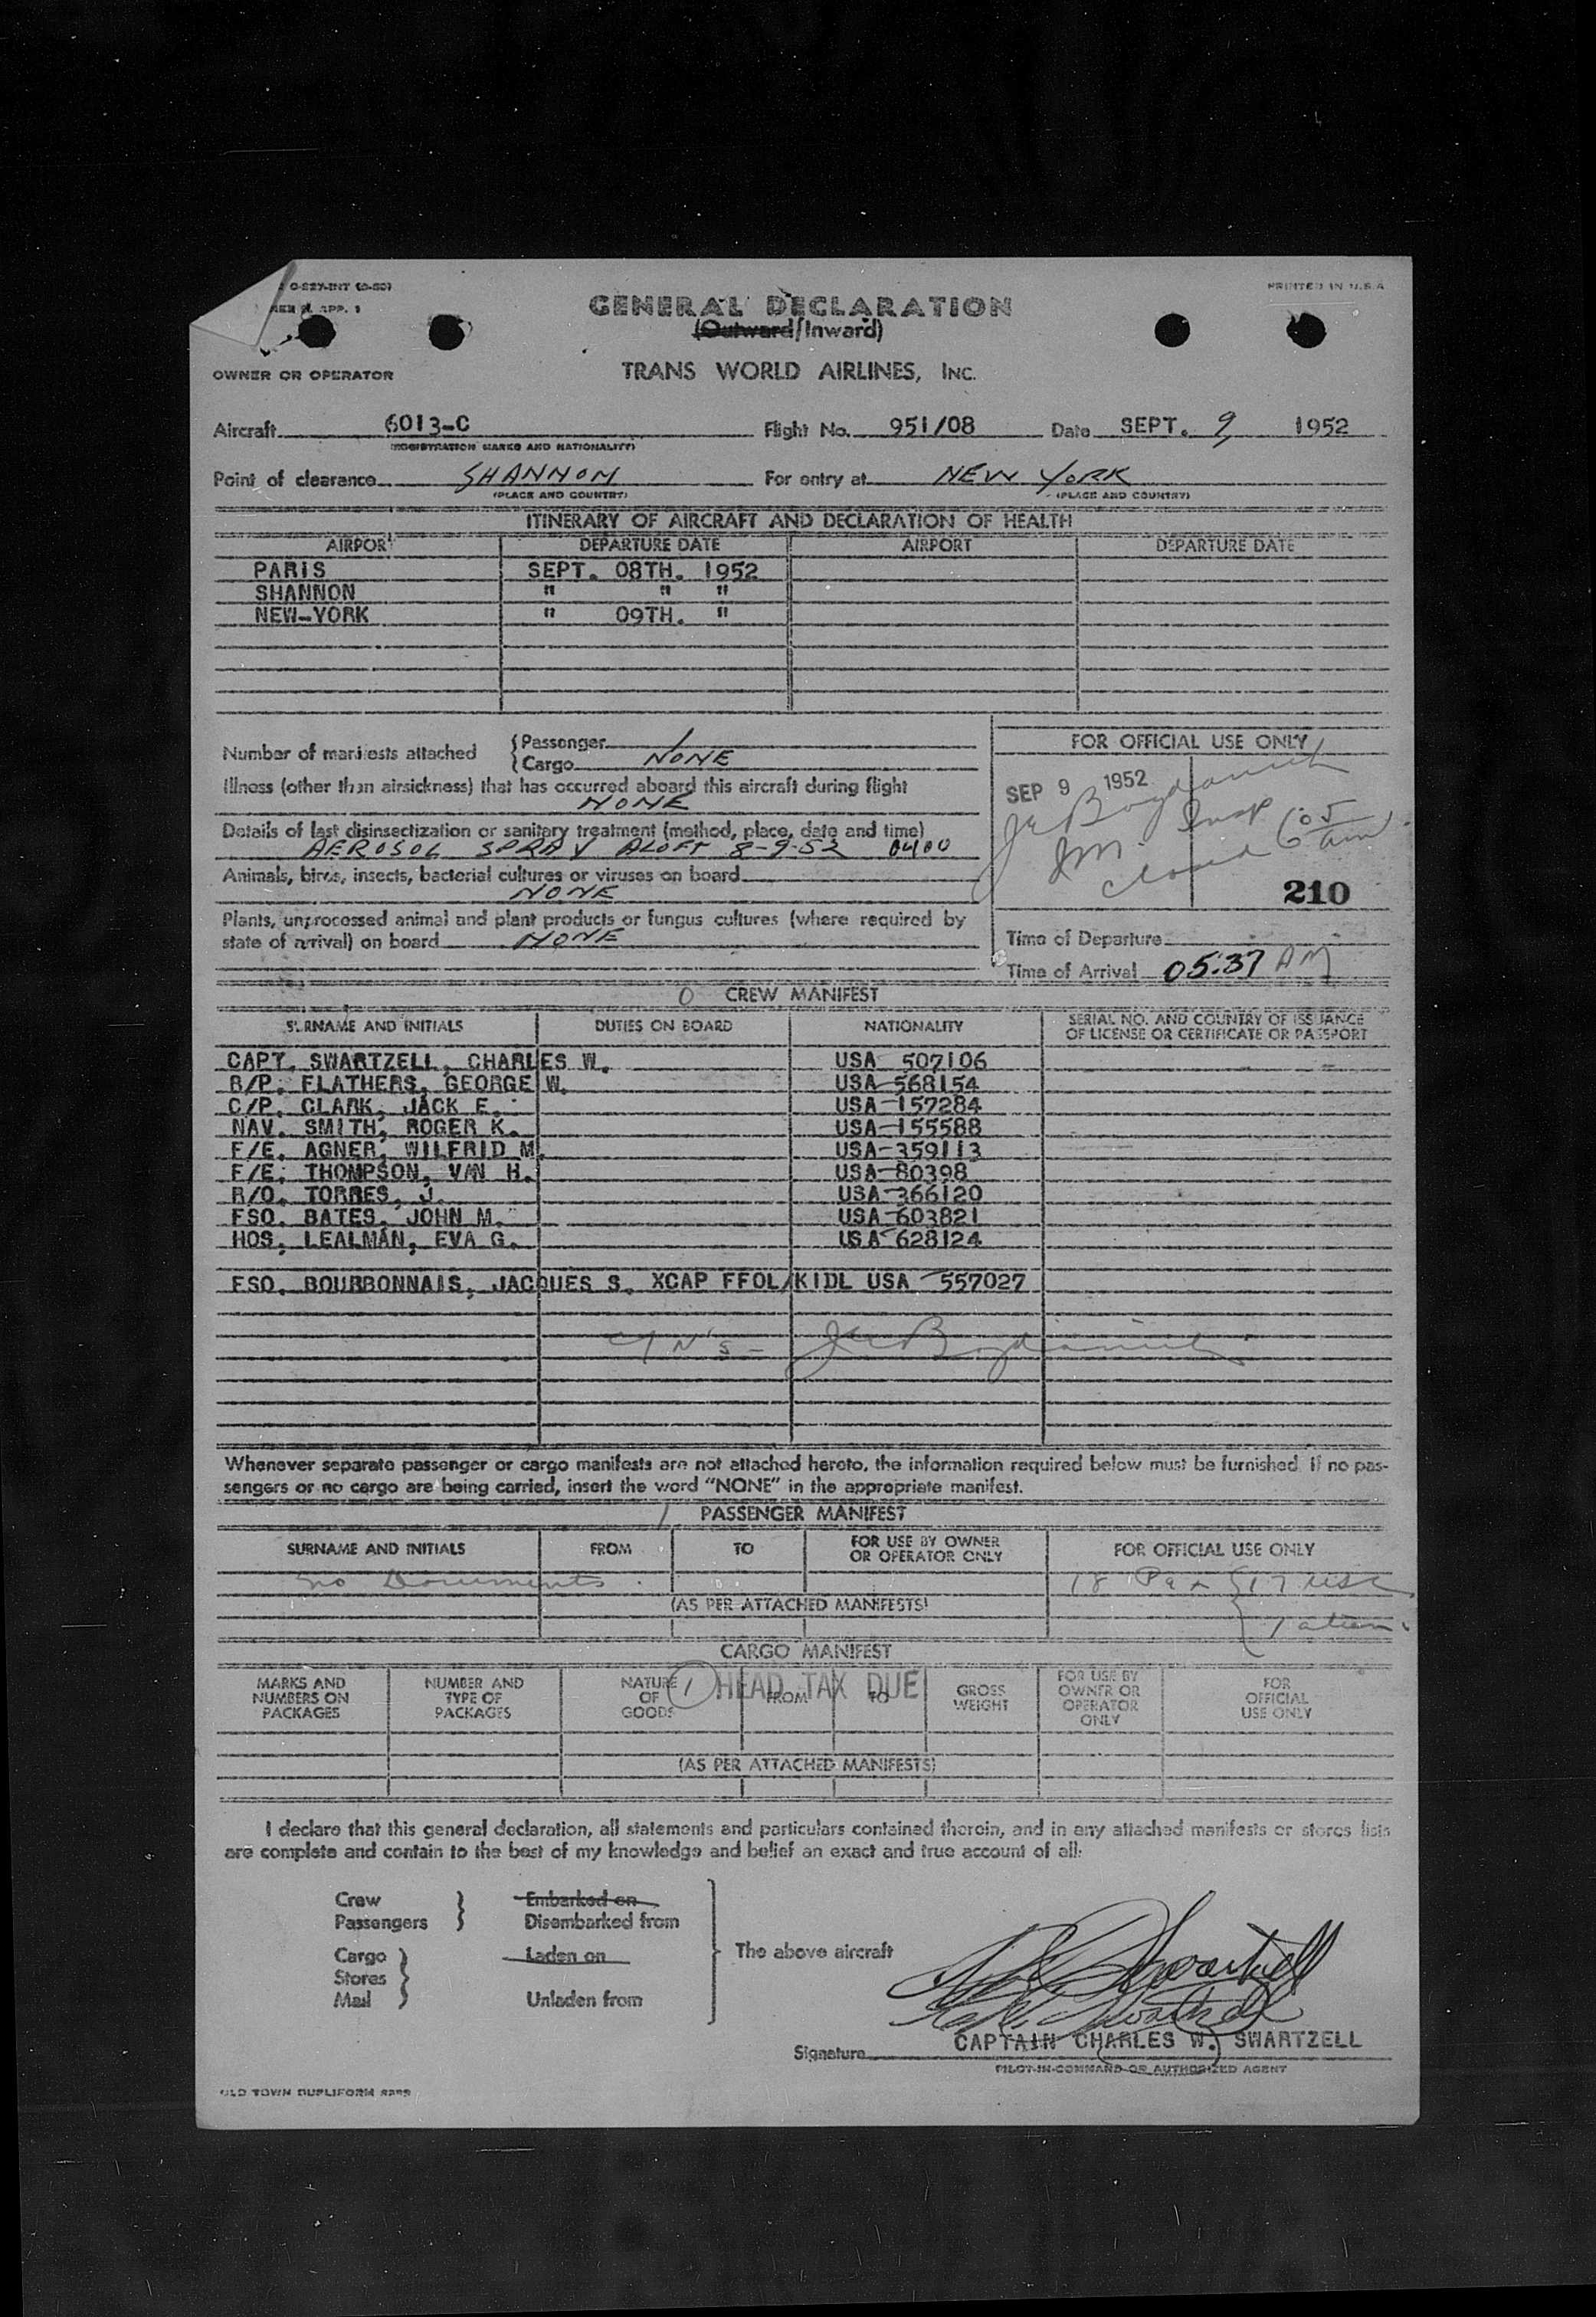 PRINTED IN U.S.A
GENERAL DECLARATION
(Outward/Inward)
OWNER OR OPERATOR
TRANS WORLD AIRLINES, INC.
Aircraft 6013-C Flight No. 951/08 Date SEPT. 9, 1952
(REGISTRATION MARKS AND NATIONALITY)
Point of clearance SHANNON For entry at NEW YORK
(PLACE AND COUNTRY) (PLACE AND COUNTRY)
ITINERARY OF AIRCRAFT AND DECLARATION OF HEALTH
AIRPORT DEPARTURE DATE AIRPORT DEPARTURE DATE
PARIS SEPT. 08TH. 1952
SHANNON " " "
NEW-YORK " 09TH. "
Number of manifests attached {Passenger 1
{Cargo NONE
Illness (other than airsickness) that has occurred aboard this aircraft during flight
NONE
Details of last disinsectization or sanitary treatment (method, place, date and time)
AEROSOL SPRAY ALOFT 8-9-52 0400
Animals, birds, insects, bacterial cultures or viruses on board
NONE
Plants, unprocessed animal and plant products or fungus cultures (where required by
state of arrival) on board NONE
FOR OFFICIAL USE ONLY
SEP 9 1952
Insp
closed 6 05 am
210
Time of Departure
Time of Arrival 05:37 AM
0 CREW MANIFEST
SURNAME AND INITIALS DUTIES ON BOARD NATIONALITY SERIAL NO. AND COUNTRY OF ISSUANCE
OF LICENSE OR CERTIFICATE OR PASSPORT
CAPT. SWARTZELL, CHARLES W. USA 507106
B/P. FLATHERS, GEORGE W. USA 568154
C/P. CLARK, JACK E. USA 157284
NAV. SMITH, ROGER K. USA 155588
F/E. AGNER, WILFRID M. USA 359113
F/E. THOMPSON, VAN H. USA 80398
R/O. TORRES, J. USA 366120
FSO. BATES, JOHN M. USA 603821
HOS. LEALMAN, EVA G. USA 628124
FSO. BOURBONNAIS, JACQUES S. XCAP FFOL/KIDL USA 557027
Whenever separate passenger or cargo manifests are not attached hereto, the information required below must be furnished. If no pas-
sengers or no cargo are being carried, insert the word "NONE" in the appropriate manifest.
1 PASSENGER MANIFEST
SURNAME AND INITIALS FROM TO FOR USE BY OWNER
OR OPERATOR ONLY FOR OFFICIAL USE ONLY
No Documents. 18 Pax {17 USC
(AS PER ATTACHED MANIFESTS) 1 alien
CARGO MANIFEST
1 HEAD TAX DUE
MARKS AND
NUMBERS ON
PACKAGES
NUMBER AND
TYPE OF
PACKAGES
NATURE
OF
GOODS
FROM
TO
GROSS
WEIGHT
FOR USE BY
OWNER OR
OPERATOR
ONLY
FOR
OFFICIAL
USE ONLY
(AS PER ATTACHED MANIFESTS)
I declare that this general declaration, all statements and particulars contained therein, and in any attached manifests or stores lists
are complete and contain to the best of my knowledge and belief an exact and true account of all:
Crew } Embarked on
Passengers } Disembarked from
Cargo } Laden on
Stores
Mail } Unladen from
The above aircraft
Signature CAPTAIN CHARLES W. SWARTZELL
PILOT-IN-COMMAND OR AUTHORIZED AGENT
OLD TOWN DUPLIFORM